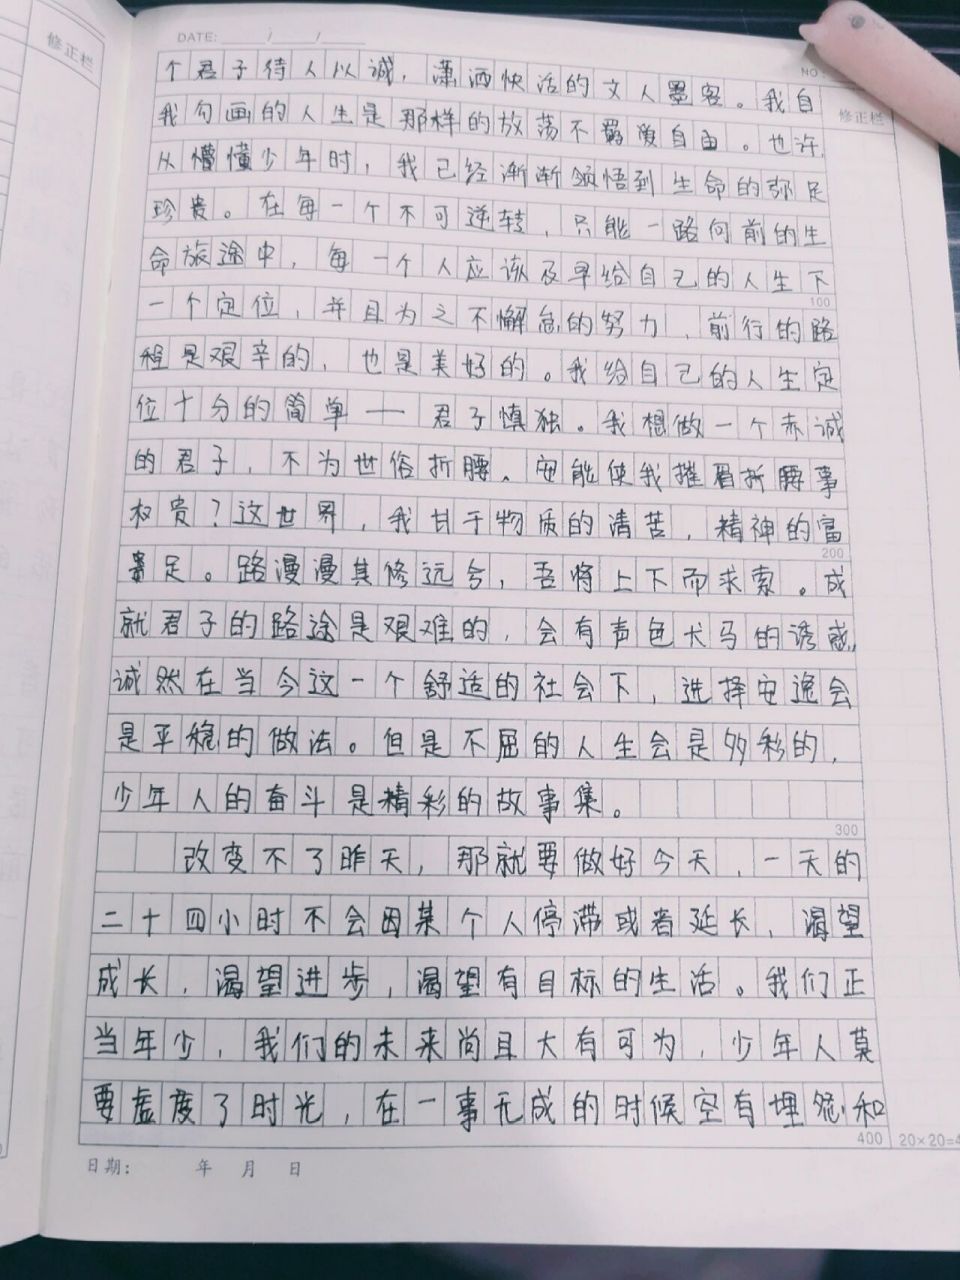 修正栏
DATE: / /
NO:
修正栏
个君子待人以诚，潇洒快活的文人墨客。我自
我勾画的人生是那样的放荡不羁爱自由。也许，
从懵懂少年时，我已经渐渐领悟到生命的弥足
珍贵。在每一个不可逆转，只能一路向前的生
命旅途中，每一个人应该及早给自己的人生下
100
一个定位，并且为之不懈怠的努力，前行的路
程是艰辛的，也是美好的。我给自己的人生定
位十分的简单——君子慎独。我想做一个赤诚
的君子，不为世俗折腰。安能使我摧眉折腰事
权贵？这世界，我甘于物质的清苦，精神的富
200
足。路漫漫其修远兮，吾将上下而求索。成
就君子的路途是艰难的，会有声色犬马的诱惑，
诚然在当今这一个舒适的社会下，选择安逸会
是平稳的做法。但是不屈的人生会是多彩的，
少年人的奋斗是精彩的故事集。
300
改变不了昨天，那就要做好今天，一天的
二十四小时不会因某个人停滞或者延长，渴望
成长，渴望进步，渴望有目标的生活。我们正
当年少，我们的未来尚且大有可为，少年人莫
要虚度了时光，在一事无成的时候空有埋怨和
400
20×20=4
日期： 年 月 日